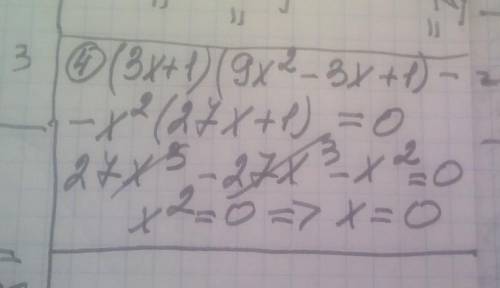 3
④ (3x+1)(9x² - 3x+1) -
- x²(27x+1) = 0
27x³ - 27x³ - x² = 0
x² = 0 => x = 0